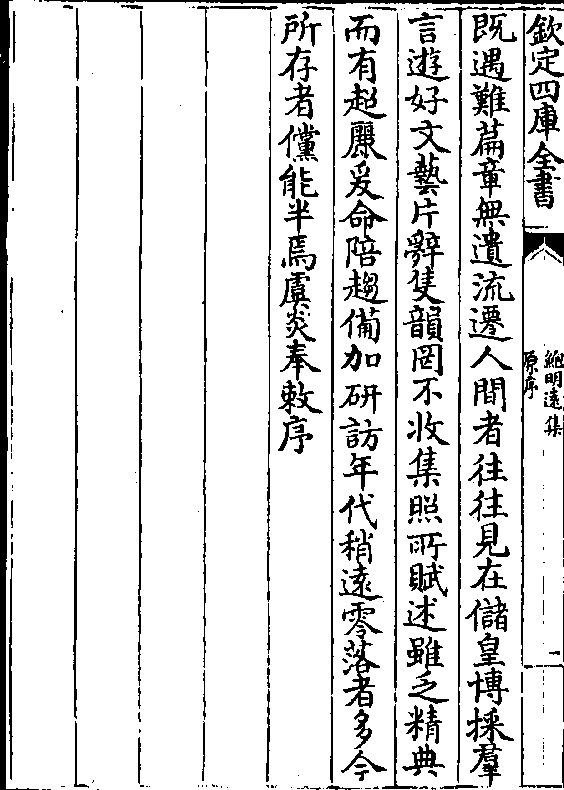 欽定四庫全書
鮑明遠集
原序
一
既遇難篇章無遺流遷人間者往往見在儲皇博採羣
言遊好文藝片辭隻韻罔不收集照所賦述雖乏精典
而有超麗爰命陪趨備加研訪年代稍遠零落者多今
所存者儻能半焉虞炎奉敕序